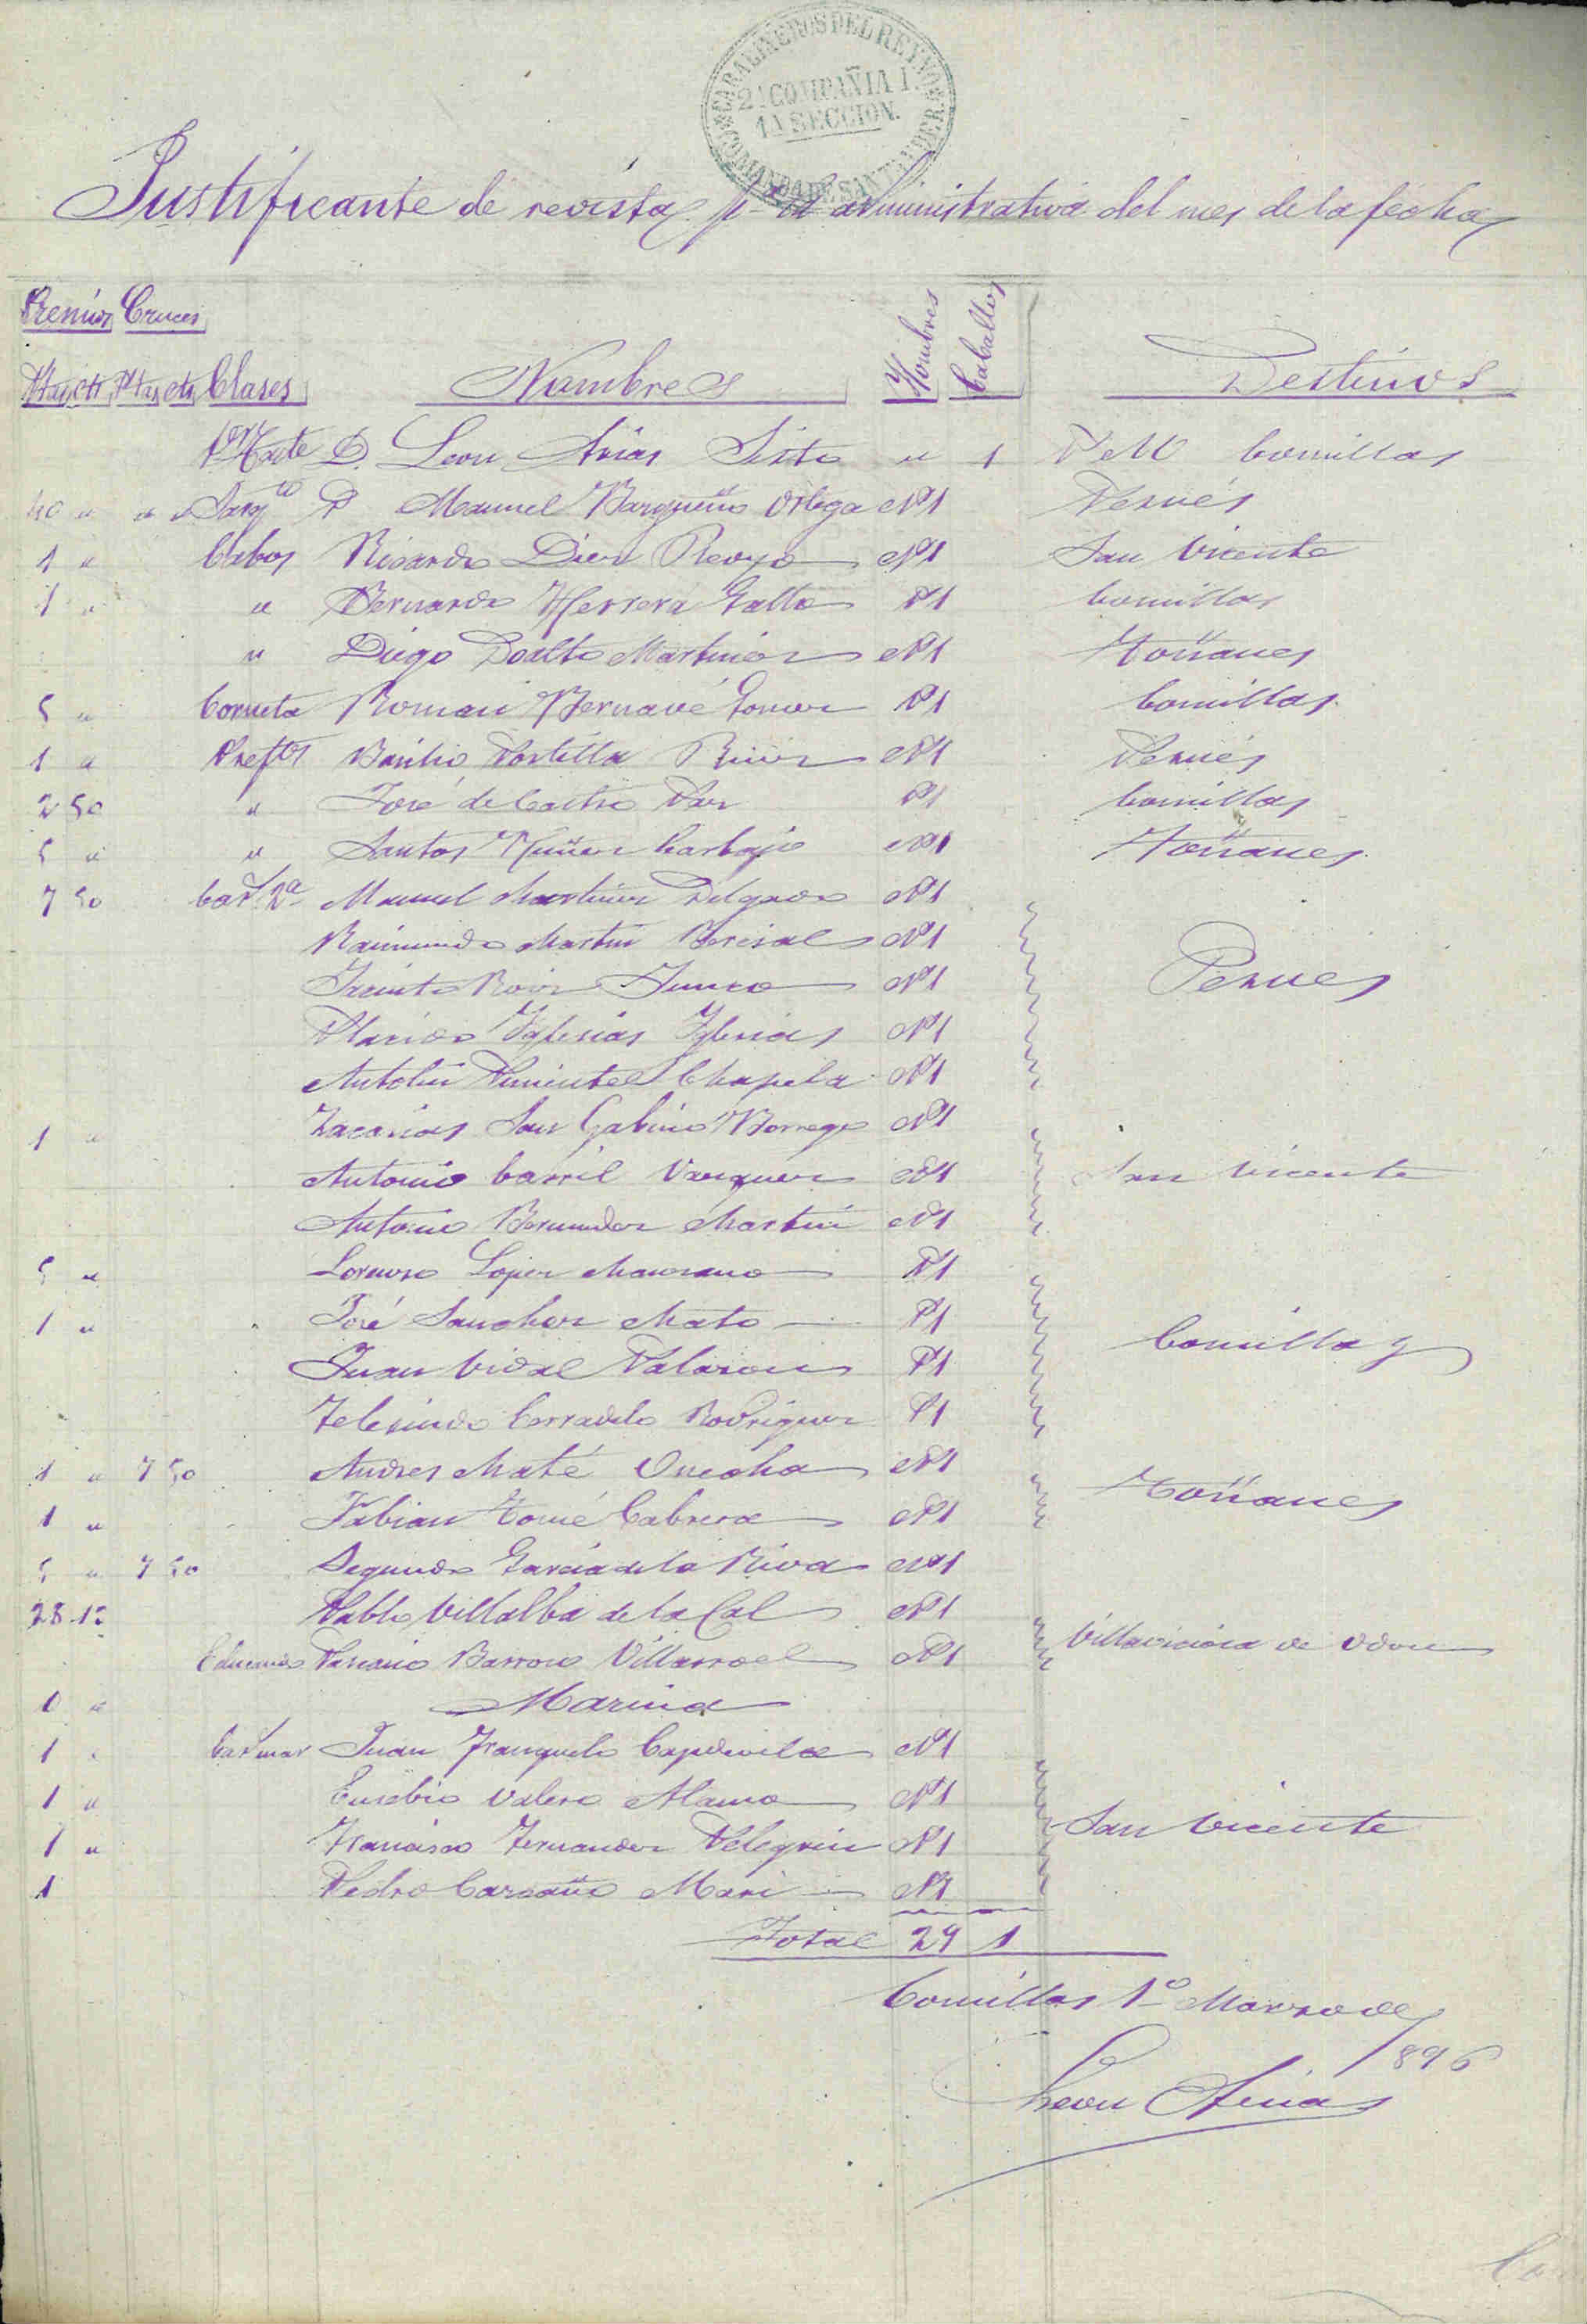 CARABINEROS DEL REYNO
2ª COMPAÑIA 1.
1ª SECCION.
COMANDA DE SANTANDER
Justificante de revista pª la administrativa del mes de la fecha
Premios Cruces
Ptas cts Ptas cts Clases Nombres Hombres Caballos Destinos
1er Tnte D. Leon Arias Sixto " 1 P M Comillas
40 " " " Sargto P Manuel Bargueño Ortega NP1 Pesués
1 " Cabos Ricardo Diez Revya NP1 San Vicente
1 " " Bernardo Herrera Gallo P1 Comillas
" Diego Doalto Martinez NP1 Toñanes
5 " Corneta Roman Bernavé Gomez P1 Comillas
1 " Preftes Basilio Portilla Ruiz NP1 Pesués
2 50 " José de Castro Paz P1 Comillas
5 " " Santos Muñoz Carbajo NP1 Toñanes
7 50 Car 2ª Manuel Martinez Delgado NP1
Raimundo Martin Berisal NP1
Jacinto Roiz Junco NP1 Pesues
Placido Yglesias Yglesias NP1
Antolin Pimentel Chapela NP1
1 " Zacarias San Gabino Borrego NP1
Antonio Carril Vazquez NP1 San Vicente
Antonio Bermudez Martin NP1
5 " Lorenzo Lopez Manzano P1
1 " José Sanchez Mato P1
Juan Vidal Palazon P1 Comillas
Telesindo Corradelo Rodriguez P1
1 " 7 50 Andres Maté Onecha NP1
1 " Fabian Tomé Cabrera NP1 Toñanes
5 " 7 50 Segundo Garcia de la Riva NP1
28 12 Pablo Villalba de la Cal NP1
Educando Pasiano Barroso Villarroel NP1 Villaviciosa de Odon
0 " Marina
1 " Car mar Juan Franquelo Capdevila NP1
1 " Eusebio Valero Alamo NP1
1 " Francisco Fernandez Pelegrin NP1 San Vicente
1 Pedro Carcaño Mari NP1
Total 29 1
Comillas 1º Marzo de
1896
Leon Arias